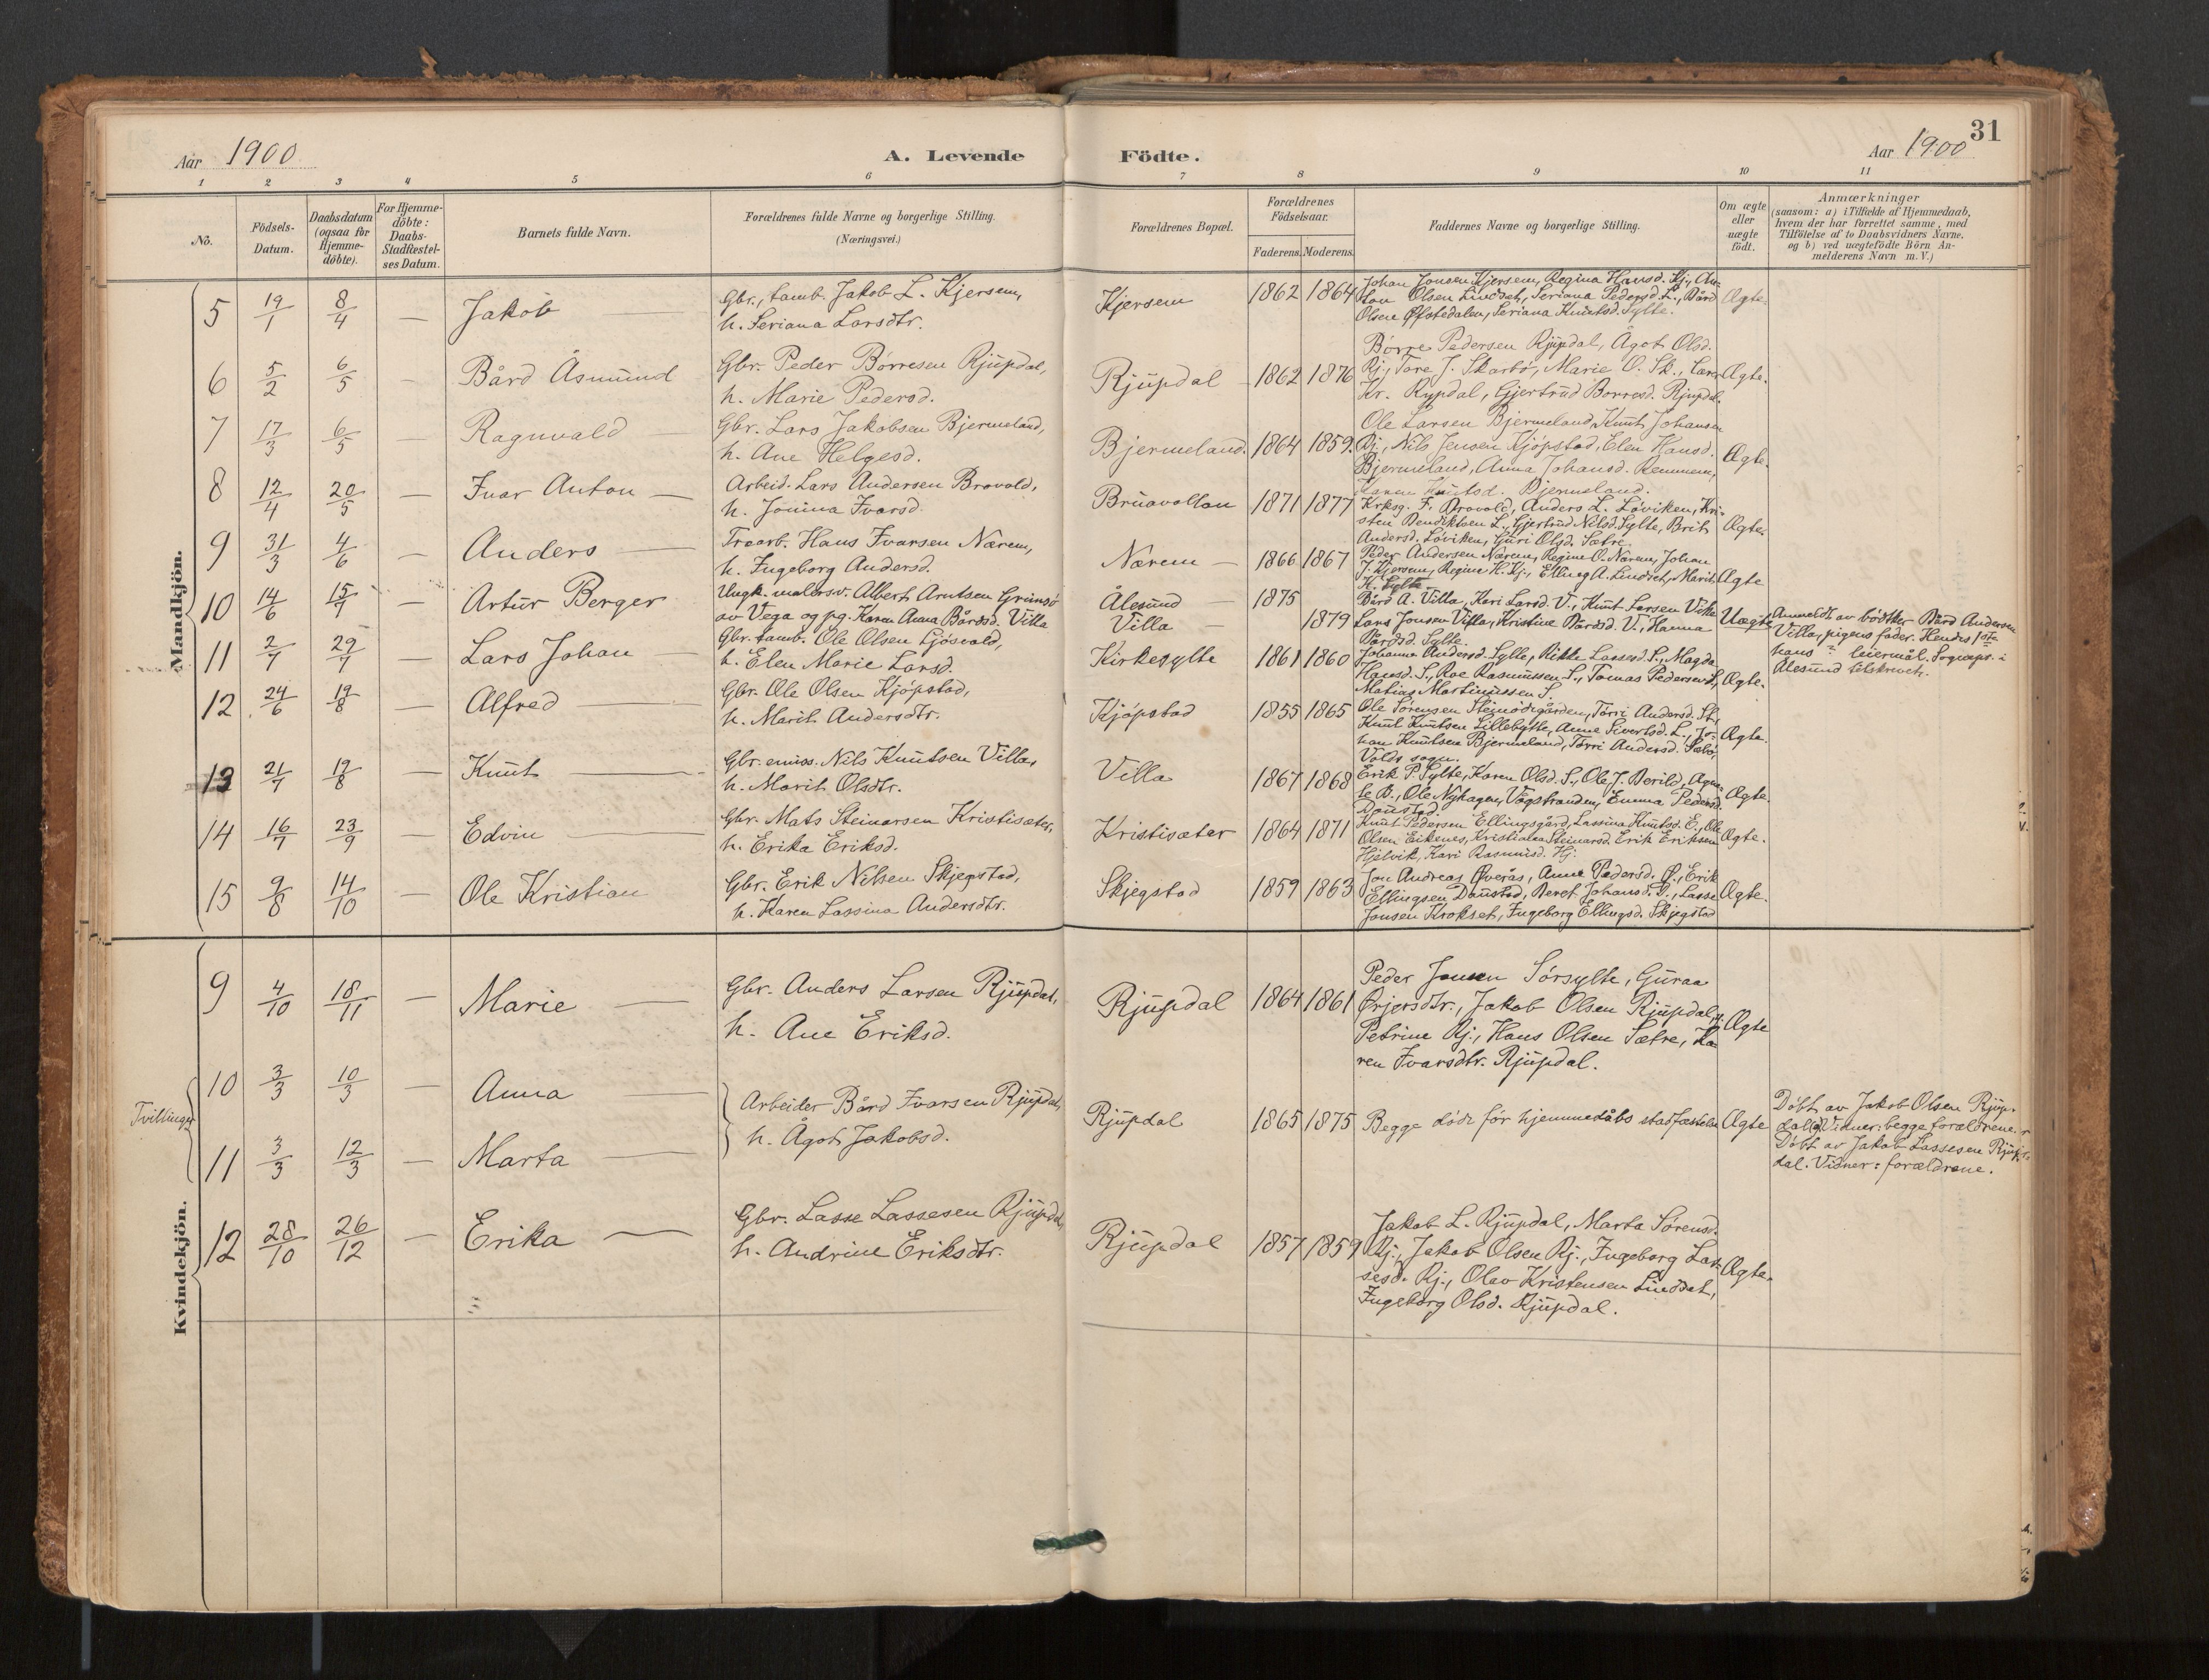 31
Aar 1900 A. Levende Födte. Aar 1900
1 2 3 4 5 6 7 8 9 10 11
No.
Födsels-
Datum.
Daabsdatum
(ogsaa för
Hjemme-
döbte).
For Hjemme-
döbte:
Daabs-
Stadfæstel-
ses Datum.
Barnets fulde Navn.
Forældrenes fulde Navne og borgerlige Stilling.
(Næringsvei.)
Forældrenes Bopæl.
Forældrenes
Födselsaar.
Faderens. Moderens.
Faddernes Navne og borgerlige Stilling.
Om ægte
eller
uægte
födt.
Anmærkninger
(saasom: a) i Tilfælde af Hjemmedaab,
hvem der har forrettet samme, med
Tilföielse af to Daabsvidners Navne.
og b) ved uægtefödte Börn An-
melderens Navn m. V.)
Mandkjön.
5 19/1 8/4 — Jakob —
Gbr., tømb. Jakob L. Kjersem,
h. Seriana Larsdtr.
Kjersem 1862 1864
Johan Jonsen Kjersem, Regina Hansd. Kj., An-
ton Olsen Lindset, Seriana Pedersd. L., Bård
Olsen Øfstedalen, Seriana Knutsd. Sylte.
Ægte.
6 5/2 6/5 — Bård Åsmund
Gbr. Peder Børresen Rjüpdal,
h. Marie Pedersd.
Rjüpdal — 1862 1876
Børre Pedersen Rjüpdal, Ågot Olsd.
Rj., Tore J. Skarbø, Marie O. Sk., Lærer
Kr. Rypdal, Gjertrud Børresd. Rjupdal.
Ægte.
7 17/3 6/5 — Ragnvald —
Gbr. Lars Jakobsen Bjermeland,
h. Ane Helgesd.
Bjermeland. 1864 1859.
Ole Larsen Bjermeland, Knut Johansen
Bj., Nils Jensen Kjøpstad, Elen Hansd.
Bjermeland, Anna Johansd. Remmem,
Karen Knutsd. Bjermeland.
Ægte.
8 12/4 20/5 — Ivar Anton —
Arbeid. Lars Andersen Brovold,
h. Jonina Ivarsd.
Brüavollan 1871 1877
Krksg. F. Brovold, Anders L. Løviken, Kri-
sten Bendiktsen L., Gjertrud Nilsd. Sylte, Brit
Andersd. Løviken, Guri Olsd. Sætre.
Ægte.
9 31/3 4/6 — Anders —
Træarb. Hans Ivarsen Nærem,
h. Ingeborg Andersd.
Nærem — 1866 1867
Peder Andersen Nærem, Regine O. Nærem, Johan
J. Kjersem, Regine H. Kj., Elling A. Lindset, Marit
K. Sylte.
Ægte
10 14/6 15/7 — Artur Berger
Ungk. malersv. Albert Arntsen Grimsø
av Vega og pg. Karen Anna Bårdsd. Villa
Ålesund — 1875
Villa — 1879
Bård A. Villa, Kari Larsd. V., Knut Larsen Villa
Lars Jonsen Villa, Kristine Bårdsd. V., Hanna
Bårdsd. Sylte.
Uægte
Anmeldt av bødtker Bård Andersen
Villa, pigens fader. Hendes 1ste
hans ? leiermål. Sogneps. i
Ålesund tilskrevet.
11 2/7 29/7 — Lars Johan —
Gbr. tømb. Ole Olsen Ljösvald,
h. Elen Marie Larsd.
Kirkesylte 1861 1860
Johanne Andersd. Sylte, Rikke Lassesd. S., Magda
Hansd. S., Roe Rasmussen S., Tomas Pedersen S.,
Matias Martinussen S.
Ægte.
12 24/6 19/8 — Alfred —
Gbr. Ole Olsen Kjöpstad,
h. Marit Andersdtr.
Kjöpstad 1855 1865
Ole Sørensen Steinødegården, Torri Andersd. St.,
Knut Knutsen Lillebytte, Anne Sivertsd. L., Jo-
han Knutsen Bjermeland, Torri Andersd. Sæbø,
Volds sogn.
Ægte.
13 21/7 19/8 — Knut —
Gbr. emiss. Nils Knutsen Villa,
h. Marit Olsdtr.
Villa 1867 1868
Erik P. Sylte, Karen Olsd. S., Ole J. Berild, Agne-
te B., Ole Nyhagen, Vågstranden, Emma Pedersd.
Daustad
Ægte.
14 16/7 23/9 — Edvin —
Gbr. Mats Steinarsen Kristisæter,
h. Erika Eriksd.
Kristisæter 1864 1871
Knut Pedersen Ellingsgård, Lassina Knutsd. E., Ole
Olsen Eiknes, Kristianna Steinarsd. Erik Eriksen
Hjelvik, Kari Rasmusd. Hj.
Ægte.
15 9/8 14/10 — Ole Kristian
Gbr. Erik Nilsen Skjegstad,
h. Karen Lassina Andersdtr.
Skjegstad 1859 1863
Jon Andreas Øverås, Anne Pedersd. Ø., Erik
Ellingsen Daustad, Beret Johansd. D., Lasse
Jonsen Krokset, Ingeborg Ellingsd. Skjegstad
Ægte.
Kvindekjön.
9 4/10 18/11 — Marie —
Gbr. Anders Larsen Rjüpdal,
h. Ane Eriksd.
Rjüpdal 1864 1861
Peder Jonsen Sörsylte, Guraa
Ørjersdtr., Jakob Olsen Rjüpdal,
Petrine Rj., Hans Olsen Sætre, Ka-
ren Ivarsdtr. Rjüpdal.
Ægte
Tvillinger
10 3/3 10/3 — Anna —
11 3/3 12/3 — Marta —
Arbeider Bård Ivarsen Rjüpdal,
h. Ågot Jakobsd.
Rjüpdal 1865 1875 Begge döde för hjemmedåbs stadfæstelse Ægte
Döbt av Jakob Olsen Rjüp-
dal. Vidner: begge forældrene.
Döbt av Jakob Lassesen Rjüp-
dal. Vidner: forældrene.
12 28/10 26/12 — Erika —
Gbr. Lasse Lassesen Rjüpdal,
h. Andrine Eriksdtr.
Rjüpdal 1857 1859
Jakob L. Rjüpdal, Marta Sörensd.
Rj., Jakob Olsen Rj., Ingeborg Las-
sesd. Rj., Olav Kristensen Lindset,
Ingeborg Olsd. Rjüpdal.
Ægte.